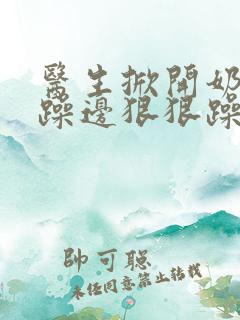 醫生掀開奶
躁邊狠狠躁
帥可聰
未经同意禁止转载